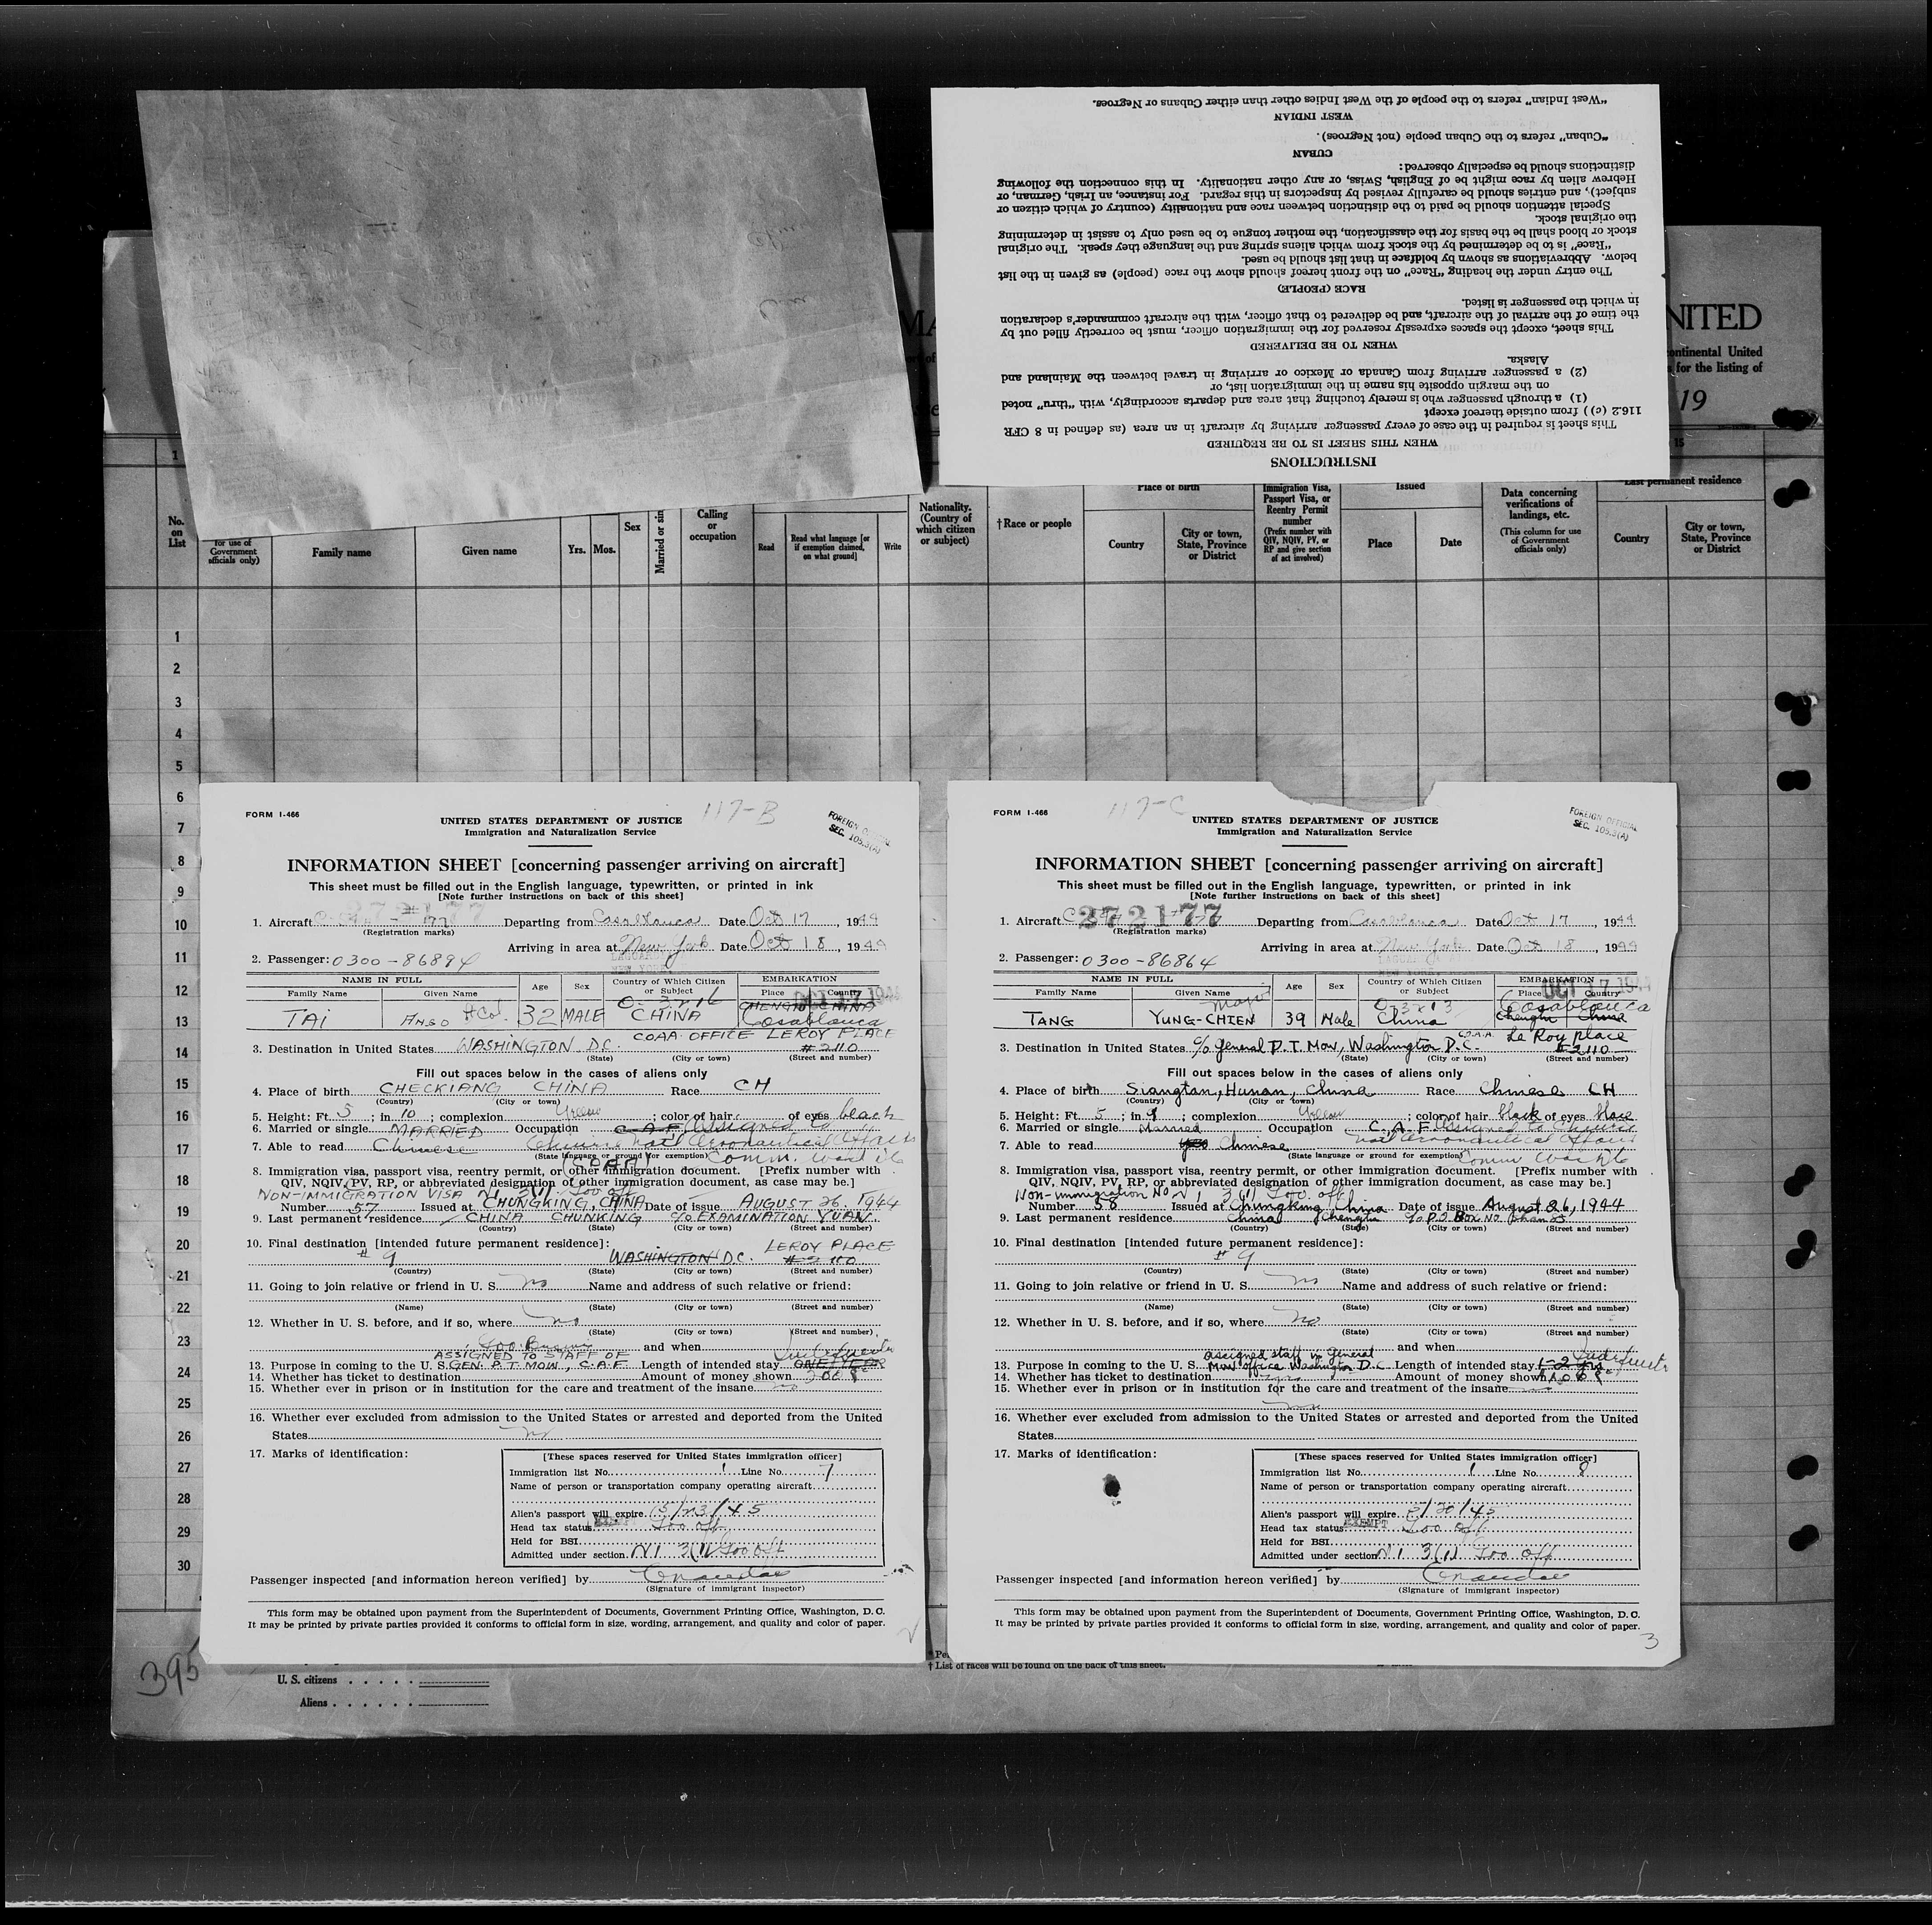 "West Indian" refers to the people of the West Indies other than either Cubans or Negroes.
WEST INDIAN
"Cuban" refers to the Cuban people (not Negroes).
CUBAN
distinctions should be especially observed:
Hebrew alien by race might be of English, Swiss, or any other nationality. In this connection the following
subject), and entries should be carefully revised by inspectors in this regard. For instance, an Irish, German, or
Special attention should be paid to the distinction between race and nationality (country of which citizen or
the original stock.
stock or blood shall be the basis for the classification, the mother tongue to be used only to assist in determining
"Race" is to be determined by the stock from which aliens spring and the language they speak. The original
below. Abbreviations as shown by boldface in that list should be used.
The entry under the heading "Race" on the front hereof should show the race (people) as given in the list
RACE (PEOPLE)
in which the passenger is listed.
the time of the arrival of the aircraft, and be delivered to that officer, with the aircraft commander's declaration
This sheet, except the spaces expressly reserved for the immigration officer, must be correctly filled out by
WHEN TO BE DELIVERED
Alaska.
(2) a passenger arriving from Canada or Mexico or arriving in travel between the Mainland and
on the margin opposite his name in the immigration list, or
(1) a through passenger who is merely touching that area and departs accordingly, with "thru" noted
116.2 (c)) from outside thereof except
This sheet is required in the case of every passenger arriving by aircraft in an area (as defined in 8 CFR
WHEN THIS SHEET IS TO BE REQUIRED
INSTRUCTIONS
NITED
ontinental United
for the listing of
19
1
15
No. on List
for use of Government officials only)
Family name
Given name
Yrs. Mos.
Sex
Married or sin
Calling or occupation
Read
Read what language [or if exemption claimed, on what ground]
Write
Nationality. (Country of which citizen or subject)
†Race or people
Place of birth
Country
City or town, State, Province or District
Immigration Visa, Passport Visa, or Reentry Permit number
(Prefix number with QIV, NQIV, PV, or RP and give section of act involved)
Issued
Place
Date
Data concerning verifications of landings, etc.
(This column for use of Government officials only)
Last permanent residence
Country
City or town, State, Province or District
1
2
3
4
5
6
7
8
9
10
11
12
13
14
15
16
17
18
19
20
21
22
23
24
25
26
27
28
29
30
FORM I-466
117-B
FOREIGN OFFICIAL
SEC. 105.3(A)
UNITED STATES DEPARTMENT OF JUSTICE
Immigration and Naturalization Service
INFORMATION SHEET [concerning passenger arriving on aircraft]
This sheet must be filled out in the English language, typewritten, or printed in ink
[Note further instructions on back of this sheet]
1. Aircraft 272177 Departing from Casablanca Date Oct 17, 1944
(Registration marks)
Arriving in area at New York Date Oct 18, 1944
2. Passenger: 0300-86894
NAME IN FULL
Family Name Given Name
Age
Sex
Country of Which Citizen or Subject
EMBARKATION
Place Country
TAI
32 MALE CHINA
CHENGTU CHINA
Casablanca
3. Destination in United States WASHINGTON D.C. COAA OFFICE LEROY PLACE #2110
(State) (City or town) (Street and number)
Fill out spaces below in the cases of aliens only
4. Place of birth CHECKIANG CHINA Race CH
(Country) (City or town)
5. Height: Ft. 5; in 10; complexion Yellow; color of hair of eyes black
6. Married or single MARRIED Occupation C.A.F. Assigned to
Chinese Nat'l Aeronautical Affairs
7. Able to read Chinese
(State language or ground for exemption) Comm.
(COAA)
8. Immigration visa, passport visa, reentry permit, or other immigration document. [Prefix number with
QIV, NQIV, PV, RP, or abbreviated designation of other immigration document, as case may be.]
NON-IMMIGRATION VISA
Number 57 Issued at CHUNGKING, CHINA Date of issue AUGUST 26, 1944
9. Last permanent residence CHINA CHUNKING c/o EXAMINATION YUAN
(Country) (State) (City or town) (Street and number)
10. Final destination [intended future permanent residence]:
# 9 WASHINGTON D.C. LEROY PLACE #2110
(Country) (State) (City or town) (Street and number)
11. Going to join relative or friend in U. S. no Name and address of such relative or friend:
(Name) (State) (City or town) (Street and number)
12. Whether in U. S. before, and if so, where no
(State) (City or town) (Street and number)
and when
ASSIGNED TO STAFF OF
13. Purpose in coming to the U. S. GEN. P. T. MOW, C.A.F. Length of intended stay ONE YEAR
14. Whether has ticket to destination Amount of money shown
15. Whether ever in prison or in institution for the care and treatment of the insane no
16. Whether ever excluded from admission to the United States or arrested and deported from the United
States no
17. Marks of identification:
[These spaces reserved for United States immigration officer]
Immigration list No. 1 Line No. 7
Name of person or transportation company operating aircraft
Alien's passport will expire 5/23/45
Head tax status EXEMPT
Held for BSI
Admitted under section
Passenger inspected [and information hereon verified] by
(Signature of immigrant inspector)
This form may be obtained upon payment from the Superintendent of Documents, Government Printing Office, Washington, D. C.
It may be printed by private parties provided it conforms to official form in size, wording, arrangement, and quality and color of paper.
FORM I-466
117-C
FOREIGN OFFICIAL
SEC. 105.3(A)
UNITED STATES DEPARTMENT OF JUSTICE
Immigration and Naturalization Service
INFORMATION SHEET [concerning passenger arriving on aircraft]
This sheet must be filled out in the English language, typewritten, or printed in ink
[Note further instructions on back of this sheet]
1. Aircraft 272177 Departing from Casablanca Date Oct 17, 1944
(Registration marks)
Arriving in area at New York Date Oct 18, 1944
2. Passenger: 0300-86864
NAME IN FULL
Family Name Given Name
Age
Sex
Country of Which Citizen or Subject
EMBARKATION
Place Country
Major
TANG YUNG-CHIEN 39 Male China
Casablanca
Chengtu China
3. Destination in United States c/o General P. T. Mow, Washington D.C. Le Roy place #2110
(State) (City or town) (Street and number)
Fill out spaces below in the cases of aliens only
4. Place of birth Siangtan, Hunan, China Race Chinese CH
(Country) (City or town)
5. Height: Ft. 5; in; complexion Yellow; color of hair black of eyes
6. Married or single Married Occupation C. A. F. Assigned to Chinese
Nat'l Aeronautical Affairs
7. Able to read yes Chinese
(State language or ground for exemption) Comm
8. Immigration visa, passport visa, reentry permit, or other immigration document. [Prefix number with
QIV, NQIV, PV, RP, or abbreviated designation of other immigration document, as case may be.]
Non-immigration No
Number 58 Issued at Chungking China Date of issue August 26, 1944
9. Last permanent residence China Chengtu c/o P.O. Box No
(Country) (State) (City or town) (Street and number)
10. Final destination [intended future permanent residence]:
# 9
(Country) (State) (City or town) (Street and number)
11. Going to join relative or friend in U. S. no Name and address of such relative or friend:
(Name) (State) (City or town) (Street and number)
12. Whether in U. S. before, and if so, where no
(State) (City or town) (Street and number)
and when
assigned staff in General
13. Purpose in coming to the U. S. Mow office Washington D.C. Length of intended stay
14. Whether has ticket to destination yes Amount of money shown
15. Whether ever in prison or in institution for the care and treatment of the insane no
16. Whether ever excluded from admission to the United States or arrested and deported from the United
States
17. Marks of identification:
[These spaces reserved for United States immigration officer]
Immigration list No. 1 Line No. 8
Name of person or transportation company operating aircraft
Alien's passport will expire
Head tax status EXEMPT
Held for BSI
Admitted under section
Passenger inspected [and information hereon verified] by
(Signature of immigrant inspector)
This form may be obtained upon payment from the Superintendent of Documents, Government Printing Office, Washington, D. C.
It may be printed by private parties provided it conforms to official form in size, wording, arrangement, and quality and color of paper.
3
395
U. S. citizens
Aliens
† List of races will be found on the back of this sheet.